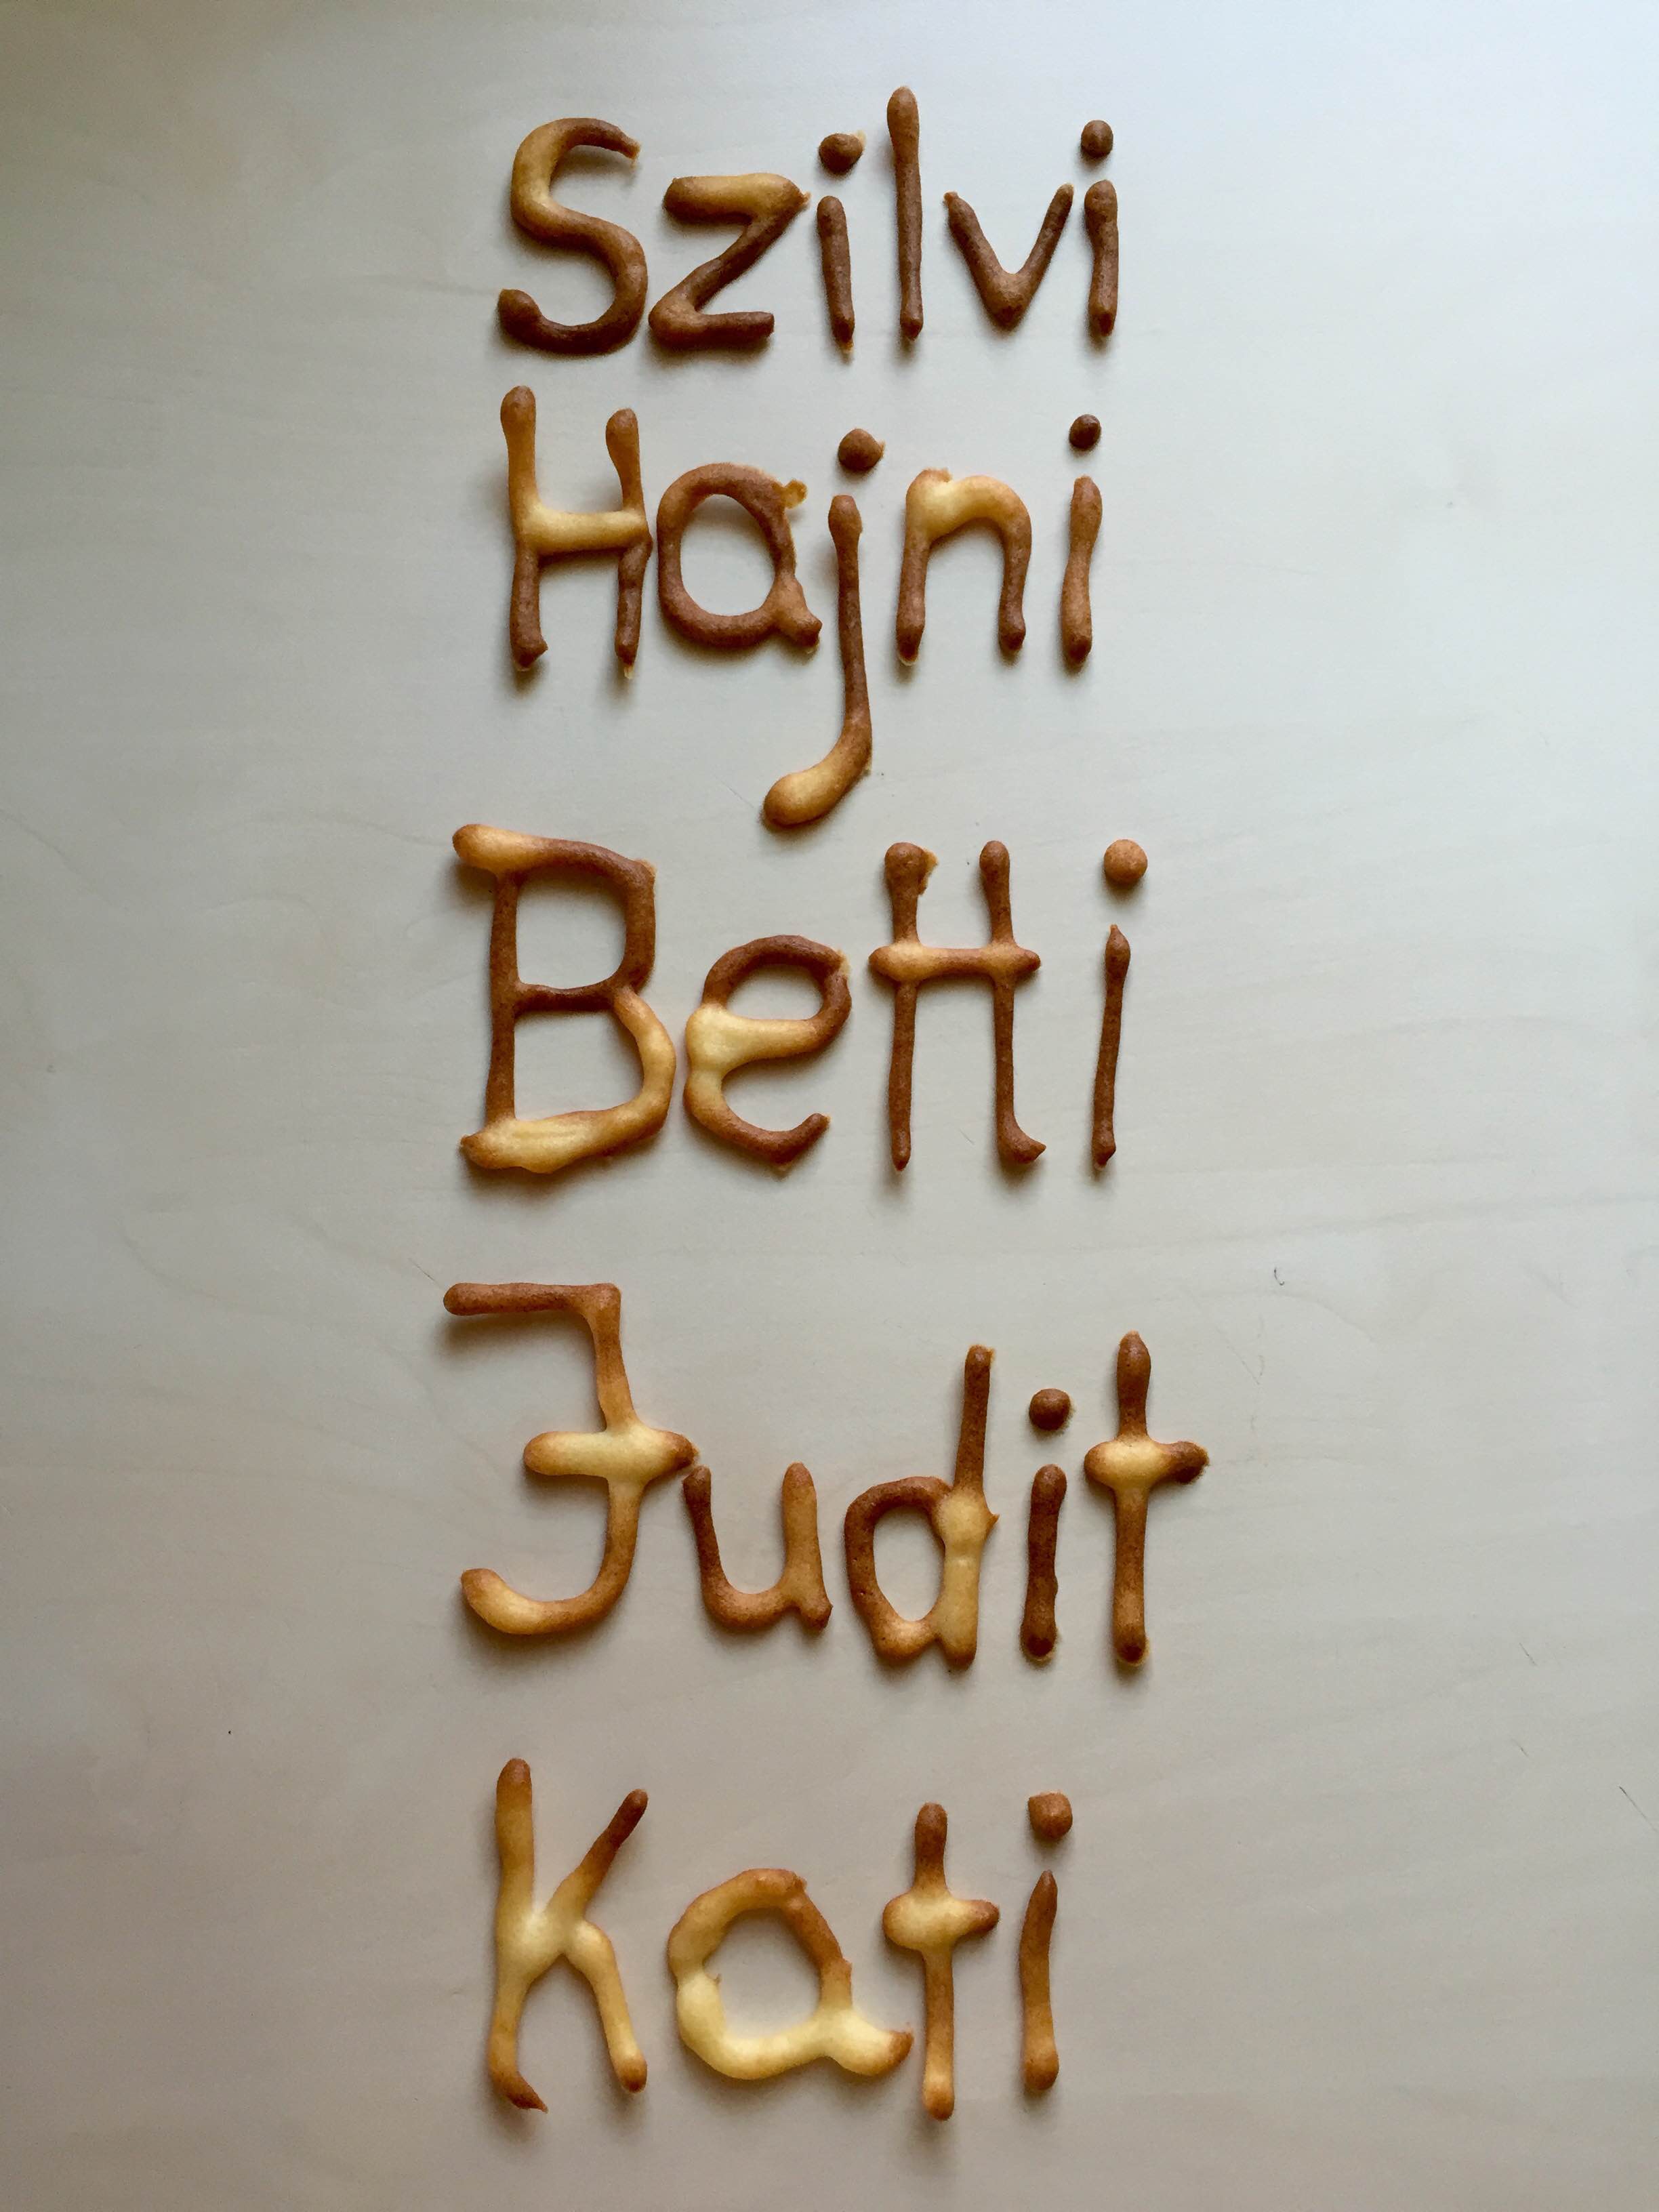 Szilvi
Hajni
Betti
Judit
Kati